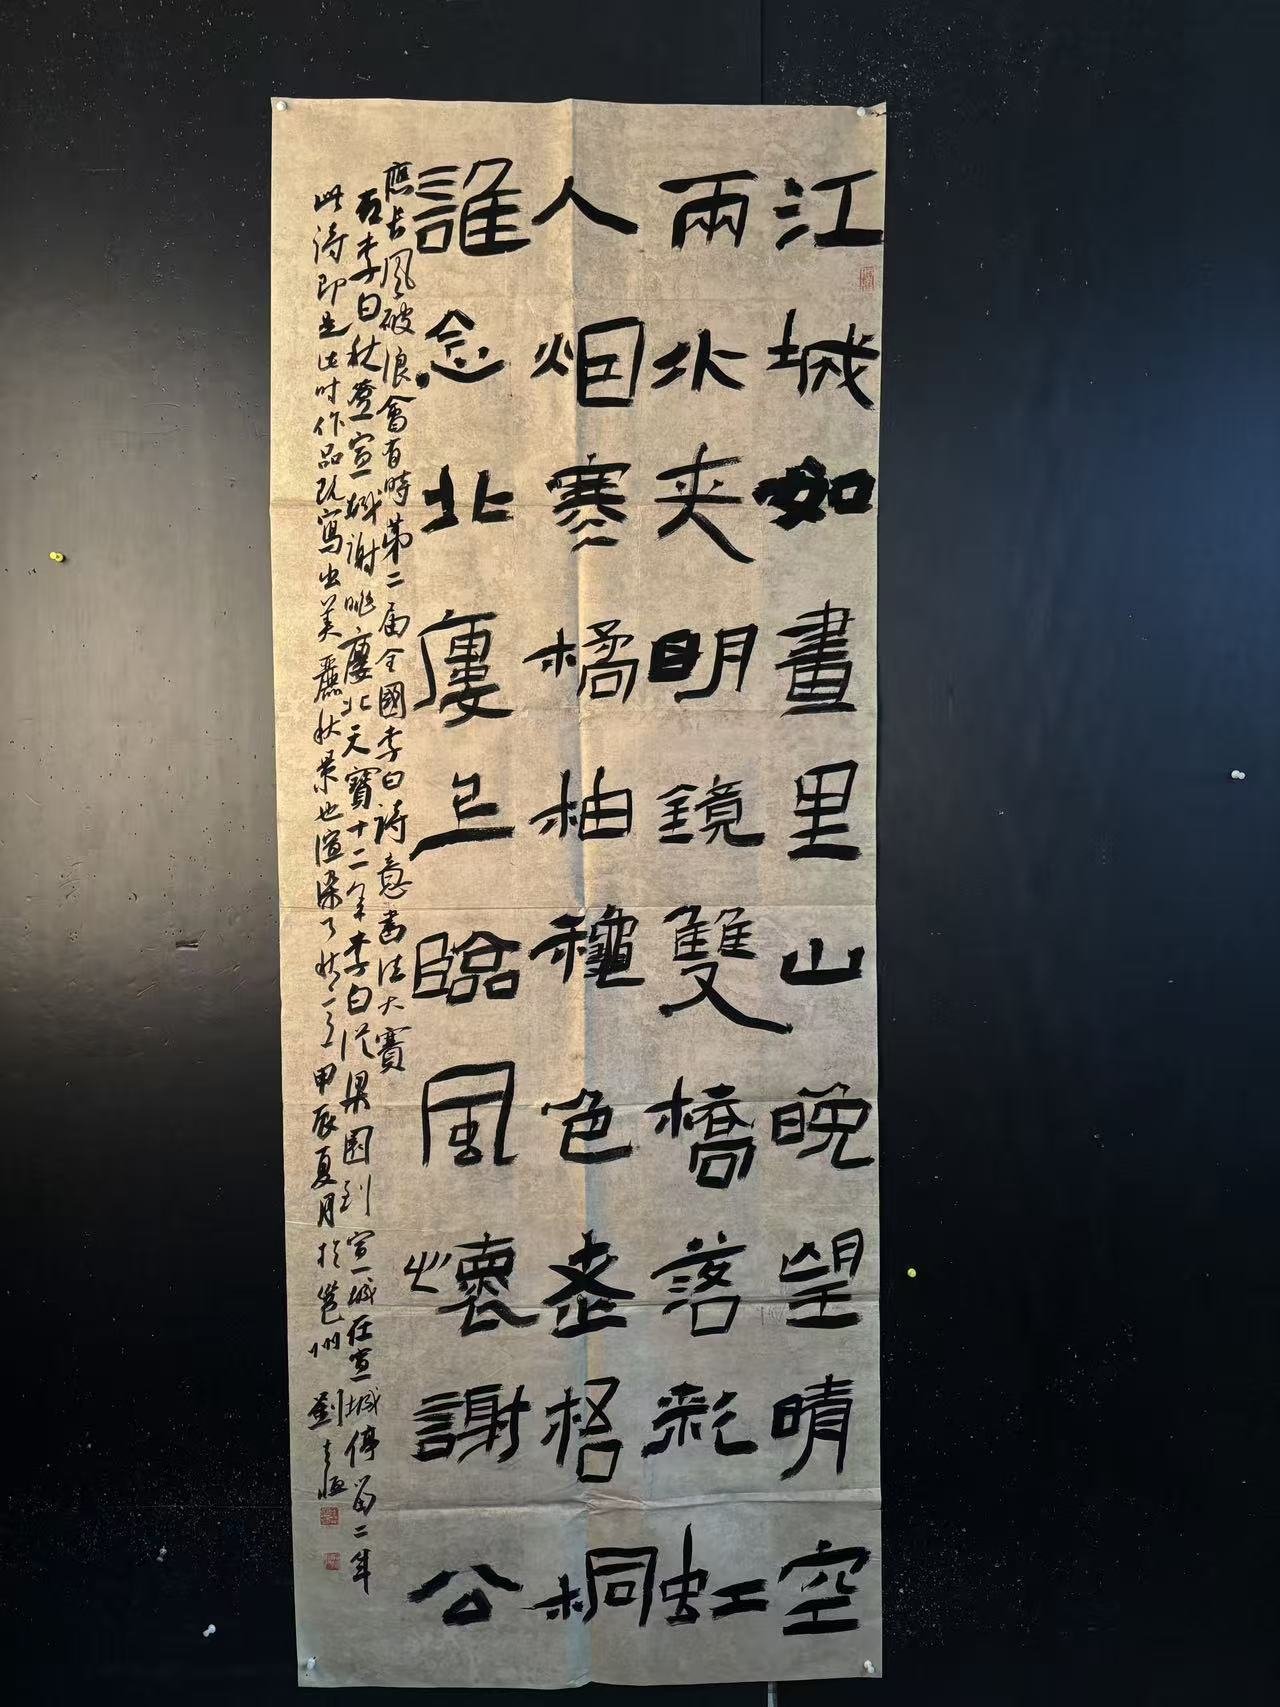 江城如畫里山晚望晴空
兩水夾明鏡雙橋落彩虹
人烟寒橘柚穐色老梧桐
誰念北廔上臨風懷謝公
應長風破浪會有時第二届全國李白詩意書法大賽
右李白秋登宣城謝朓廔北天寶十二年李白從梁園到宣城在宣城停留二年
此詩即是此時作品既寫出美麗秋景也渲染了情 甲辰夏月於邕州 劉